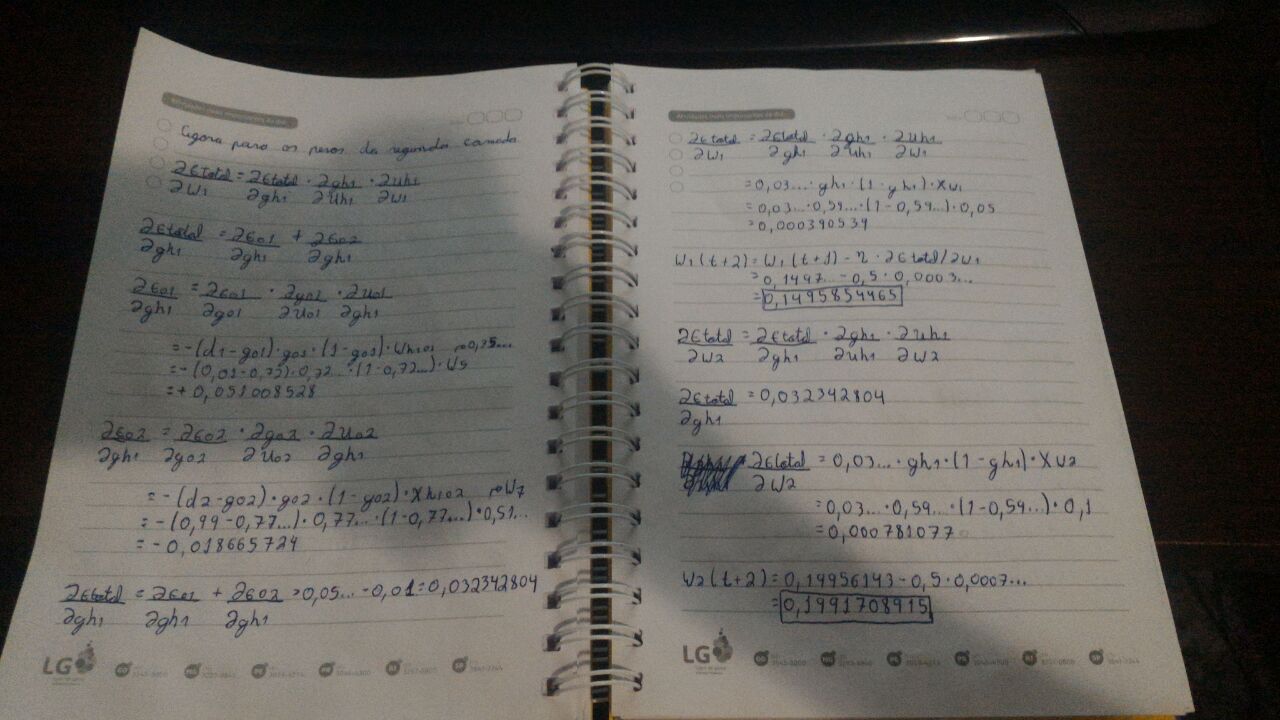 Atividades mais importantes do dia
Agora para os pesos da segunda camada
∂Etotal/∂w1 = ∂Etotal/∂gh1 · ∂gh1/∂uh1 · ∂uh1/∂w1
∂Etotal/∂gh1 = ∂Eo1/∂gh1 + ∂Eo2/∂gh1
∂Eo1/∂gh1 = ∂Eo1/∂go1 · ∂go1/∂uo1 · ∂uo1/∂gh1
= -(d1-go1) · go1 · (1-go1) · wh1o1
= -(0,01-0,72)·0,72... · (1-0,72...) · w5
= +0,051008528
∂Eo2/∂gh1 = ∂Eo2/∂go2 · ∂go2/∂uo2 · ∂uo2/∂gh1
= -(d2-go2) · go2 · (1-go2) · xh1o2 → w7
= -(0,99-0,77...) · 0,77... · (1-0,77...) · 0,51...
= -0,018665724
∂Etotal/∂gh1 = ∂Eo1/∂gh1 + ∂Eo2/∂gh1 = 0,05... - 0,01 = 0,032342804
LG
Atividades mais importantes do dia
∂Etotal/∂w1 = ∂Etotal/∂gh1 · ∂gh1/∂uh1 · ∂uh1/∂w1
= 0,03... · gh1 · (1-gh1) · xw1
= 0,03... · 0,59... · (1-0,59...) · 0,05
= 0,000390539
w1(t+2) = w1(t+1) - η · ∂Etotal/∂w1
= 0,1497... - 0,5 · 0,0003...
= 0,1495854465
∂Etotal/∂w2 = ∂Etotal/∂gh1 · ∂gh1/∂uh1 · ∂uh1/∂w2
∂Etotal/∂gh1 = 0,032342804
∂Etotal/∂w2 = 0,03... · gh1 · (1-gh1) · xw2
= 0,03... · 0,59... · (1-0,59...) · 0,1
= 0,000781077
w2(t+2) = 0,19956143 - 0,5 · 0,0007...
= 0,1991708915
LG